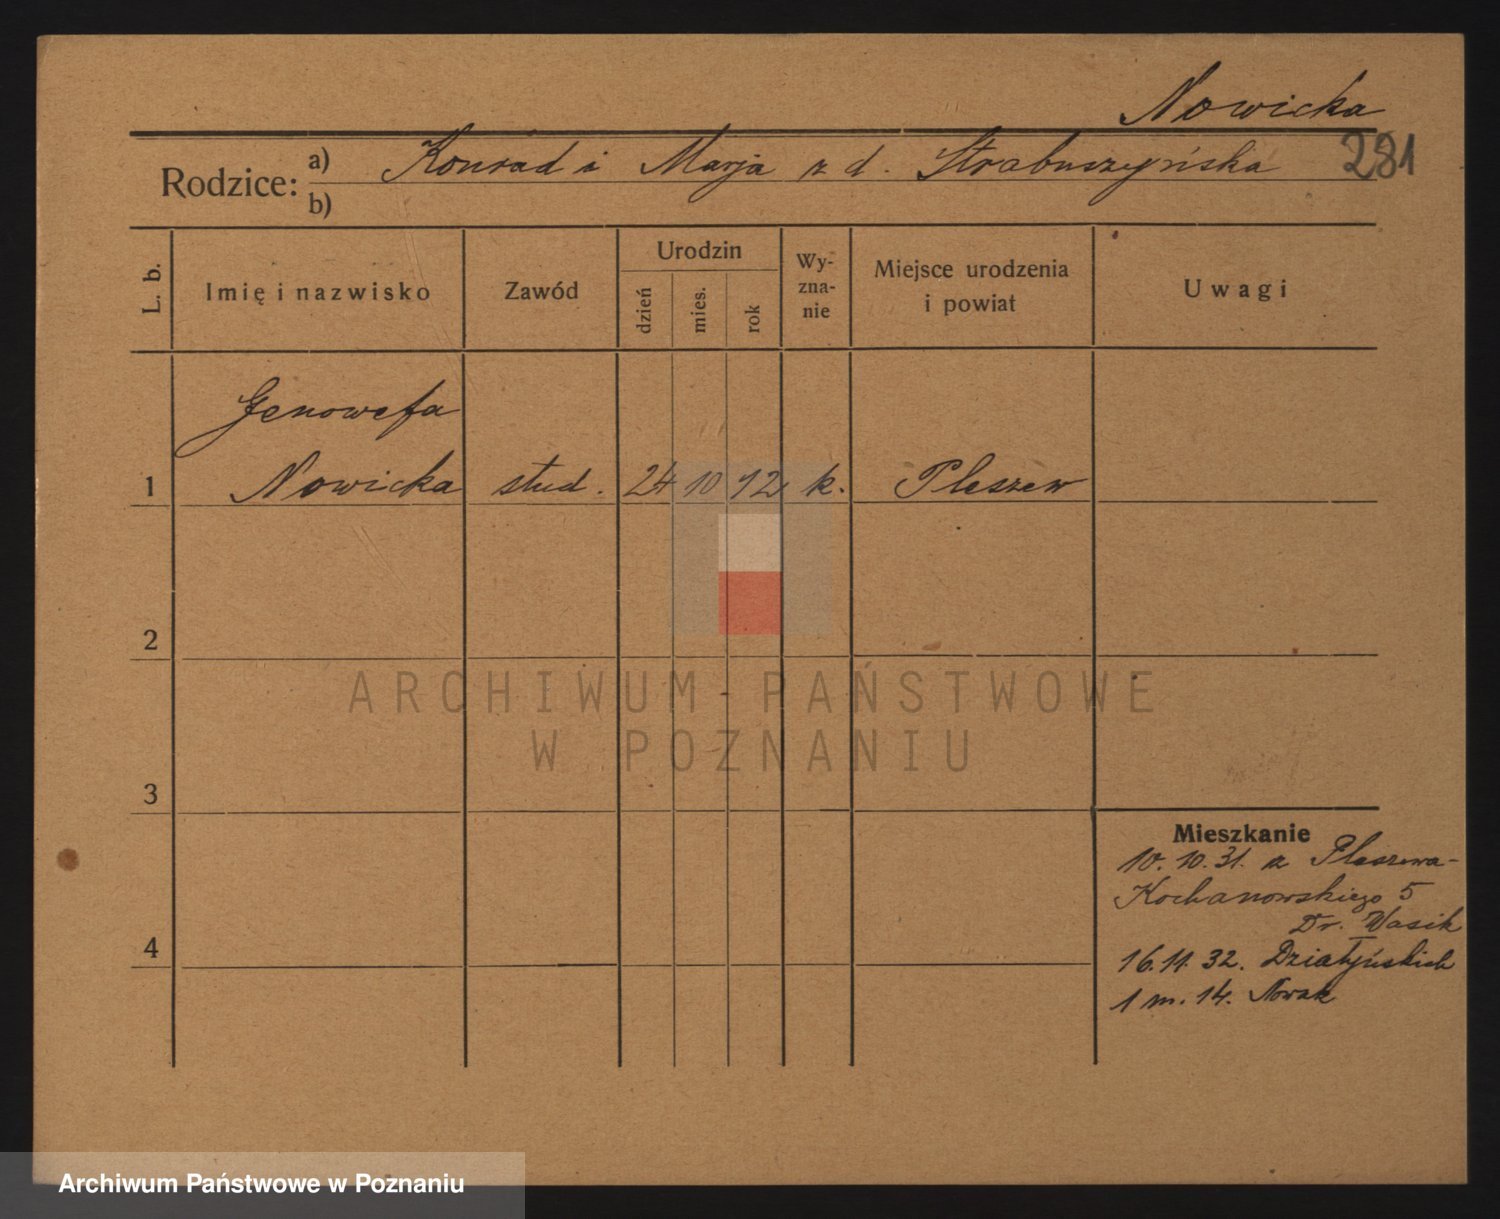 Nowicka
281
Rodzice: a) Konrad i Marja z d. Strabuszyńska
b)
L. b.
Imię i nazwisko
Zawód
Urodzin
dzień
mies.
rok
Wy-
zna-
nie
Miejsce urodzenia
i powiat
Uwagi
Genowefa
1 Nowicka stud. 24 10 12 k. Pleszew
2
3
4
Mieszkanie
10. 10. 31. z Pleszewa-
Kochanowskiego 5
Dr. Wasik
16. 11. 32. Działyńskich
1 m. 14. Nowak
ARCHIWUM PAŃSTWOWE
W POZNANIU
Archiwum Państwowe w Poznaniu